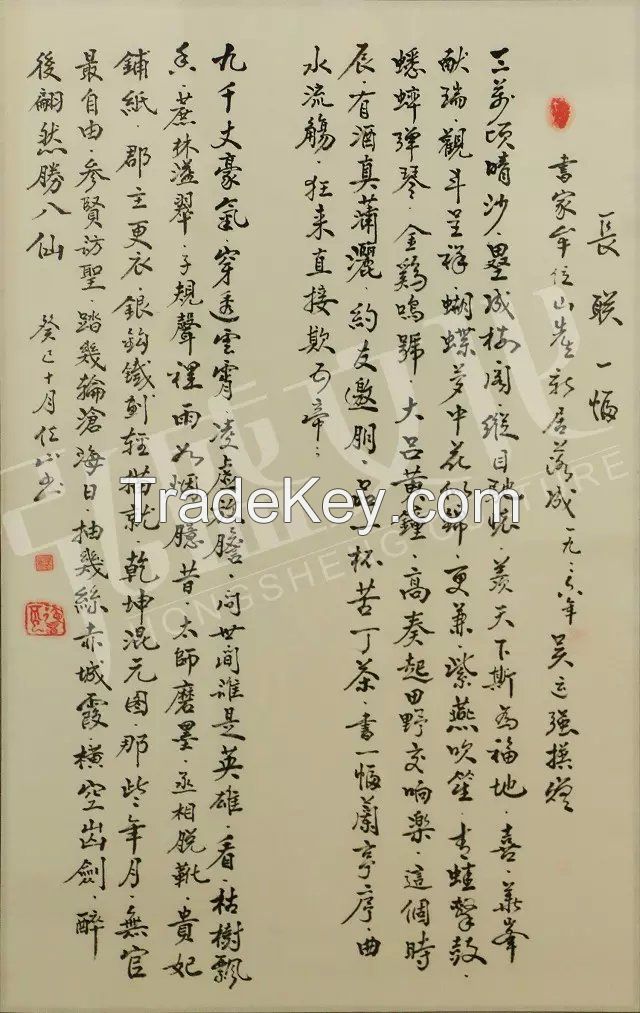 長联一幅
書家牟位山先生新居落成一九八六年吴运强撰贺
三萬頃晴沙·壘成楼阁·縱目·羡天下斯为福地·喜·華峯
献瑞·觀斗呈祥·蝴蝶梦中花似锦·更兼·紫燕吹笙·青蛙擊鼓·
蟋蟀弹琴·金鷄鸣號·大吕黄鐘·高奏起田野交响樂·這個時
辰·有酒真蒲灑·約友邀朋·品一杯苦丁茶·書一幅蘭亭序·曲
水流觴·狂来直接欺
九千丈豪氣·穿透雲霄·凌虚·問世间誰是英雄·看·枯樹飘
香·蔗林溢翠·子規聲裡雨如烟·臆昔·太師磨墨·丞相脱靴·貴妃
鋪紙·郡主更衣·銀鈎鐵劃轻描就·乾坤混元图·那些年月·無官
最自由·参賢访聖·踏幾輪滄海日·抽幾絲赤城霞·横空出劍·醉
後翩然勝八仙 癸巳十月位山书
TradeKey.com
HONGSHENG CULTURE